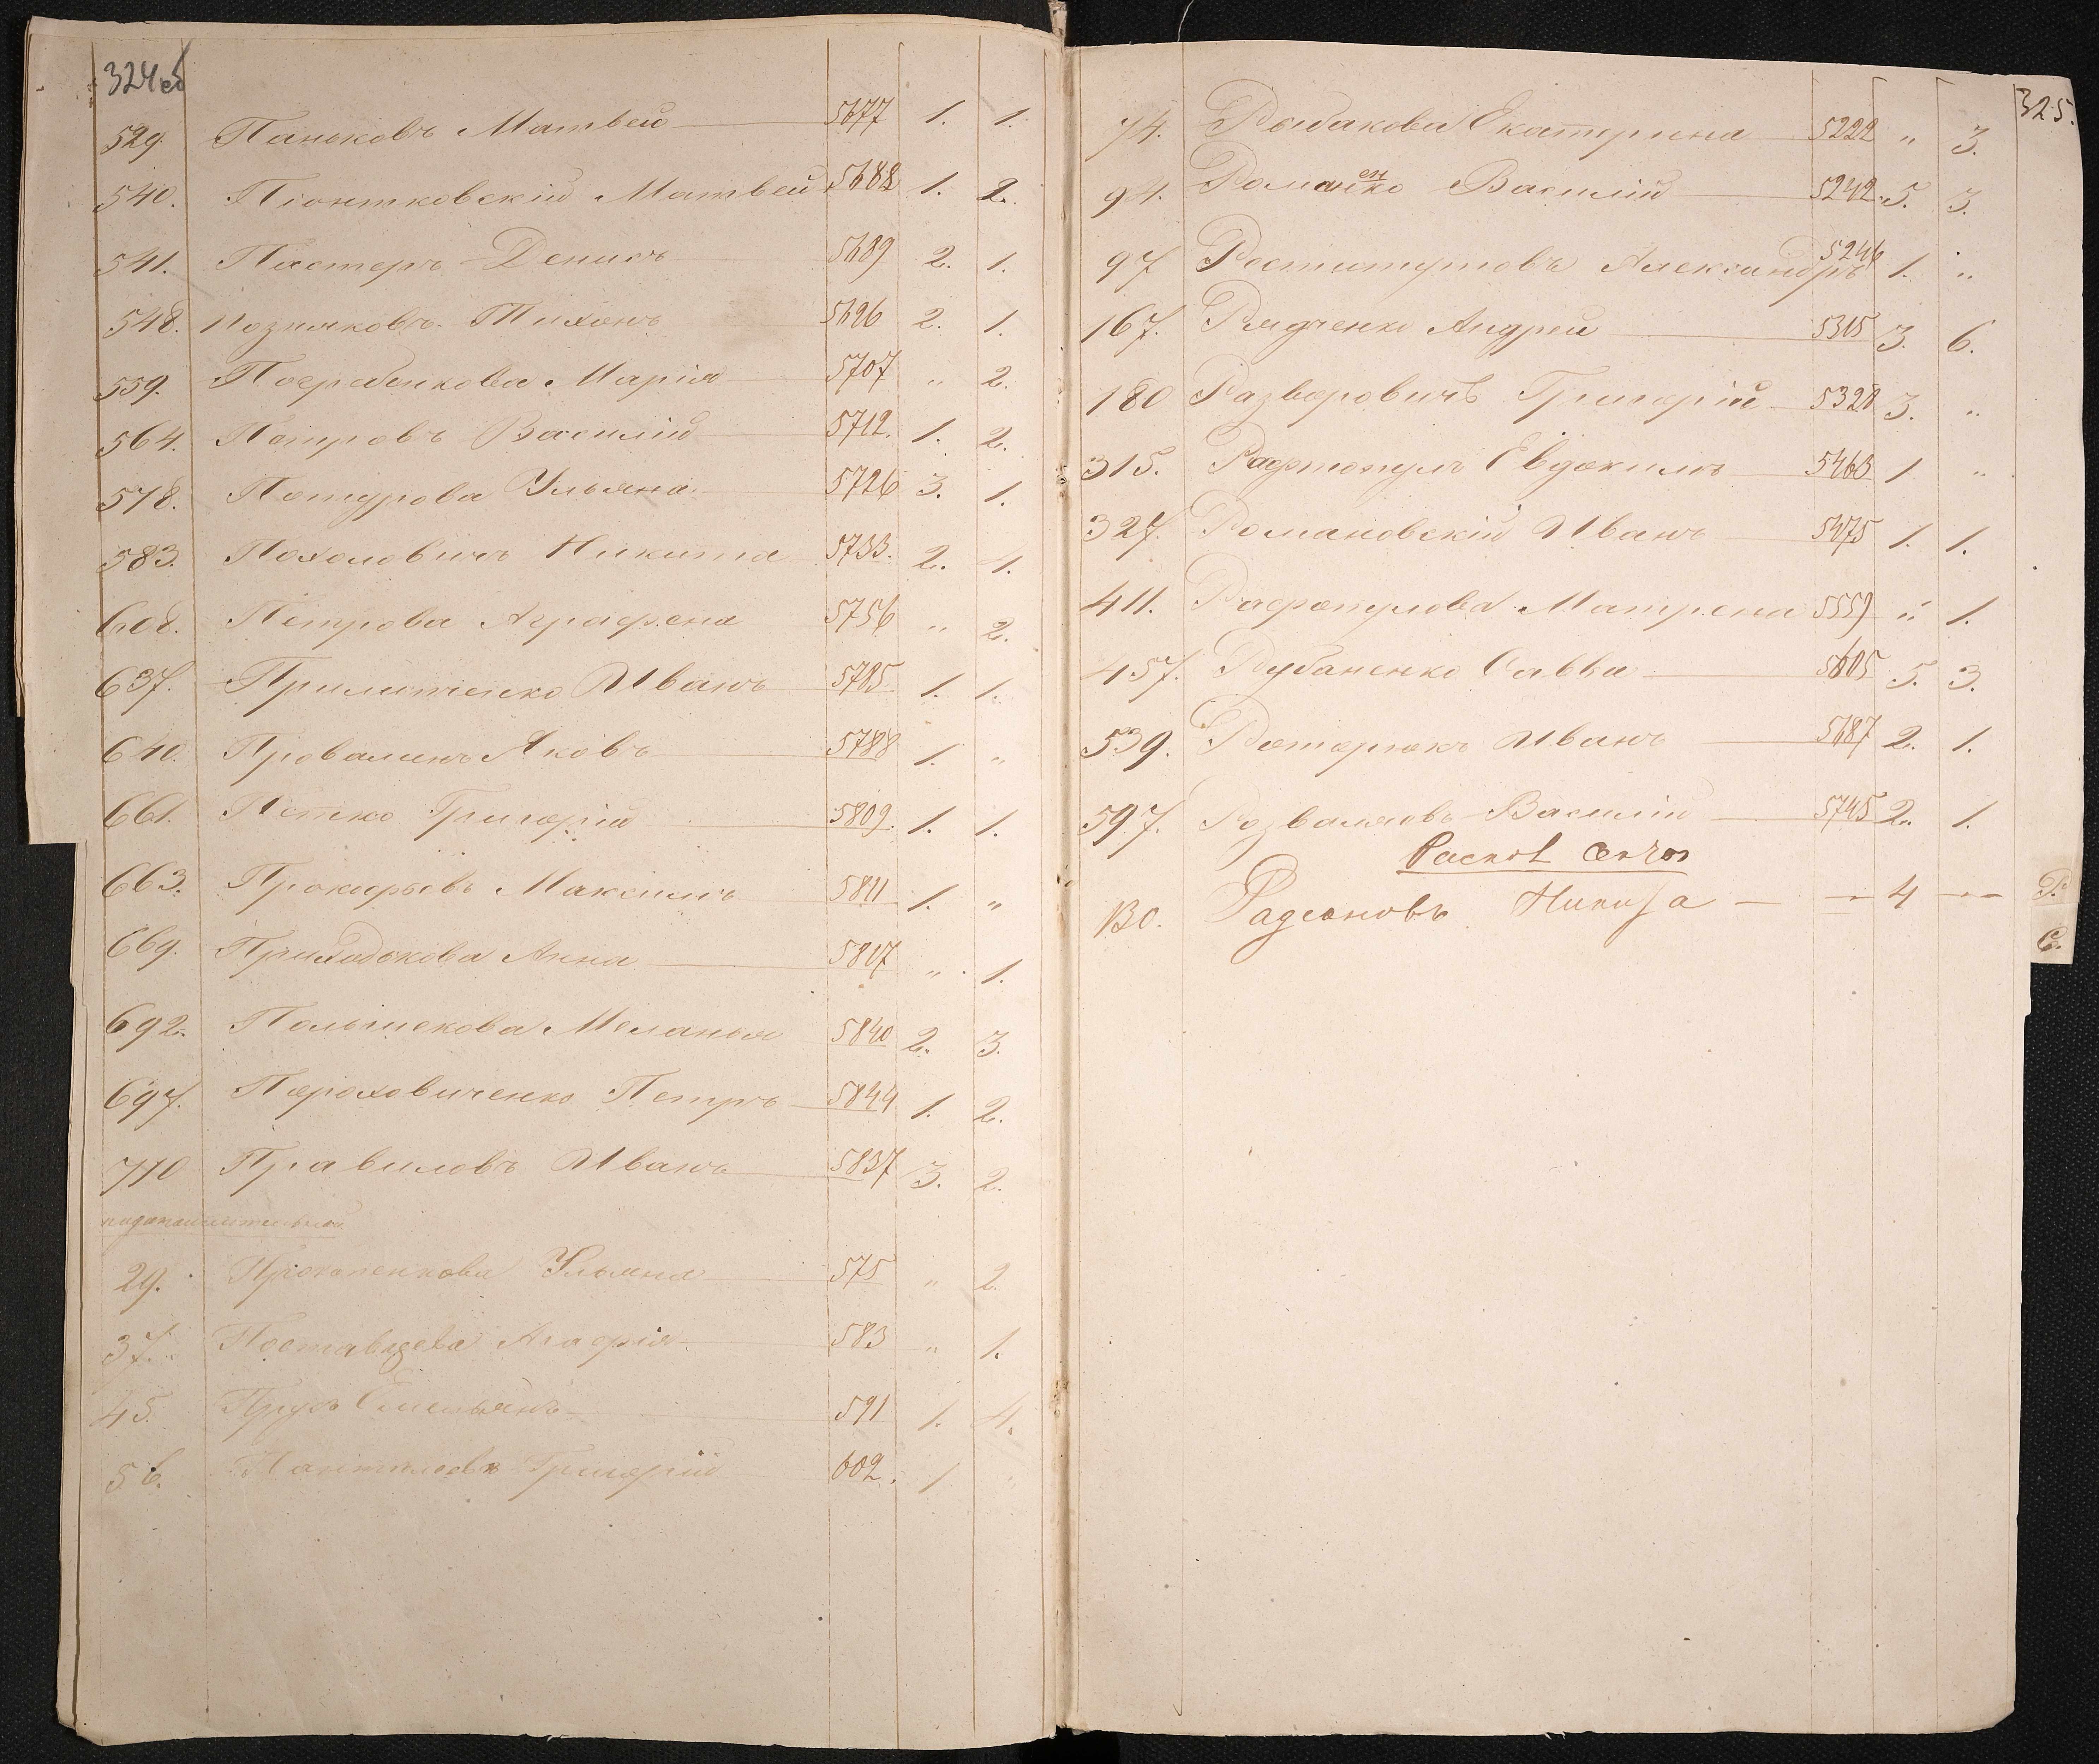 324об
529. Паньковъ Матвей 5677 1. 1.
540. Піонтковскій Матвей 5688 1. 2.
541. Пастеръ Денисъ 5689 2. 1.
548. Позняковъ Тихонъ 5696 2. 1.
559. Погребенкова Марія 5707 „ 2.
564. Петровъ Василій 5712. 1. 2.
578. Потурова Ульяна 5726 3. 1.
583. Похоловичъ Никита 5733. 2. 4.
608. Петрова Аграфена 5756 „ 2.
637. Иванъ 5785 1. 1.
640. Провалинъ Яковъ 5788 1. „
661. Петко Григорій 5809. 1. 1.
663. Прокофьевъ Максимъ 5811 1. „
669. Приходькова Анна 5817 „ 1.
692. Меланья 5840 2. 3.
697. Пороховиченко Петръ 5844 1. 2.
710 Правиловъ Иванъ 5837 3. 2.
29. Прокопенкова Ульяна 575 „ 2.
37. Агафія 583 „ 1.
45. Прусъ Емельянъ 591 1. 4.
56. Григорій 602. 1 „
325.
74. Рыбакова Екатерина 5222 „ 3.
94. Романенко Василій 5242. 5. 3.
97 Реститутовъ Александръ 5246 1. „
167. Радченко Андрей 5315 3. 6.
180 Разворовичъ Григорій 5328 3. „
315. Рафтопулъ Евдокимъ 5463 1 „
327. Романовскій Иванъ 5475 1. 1.
411. Рафтопулова Матрена 5559 „ 1.
457. Рубаненко Савва 5605 5. 3.
539. Ротерюкъ Иванъ 5687 2. 1.
597. Розваляевъ Василій 5745 2. 1.
130. Радіоновъ Никита — — 4 —
Р.
С.